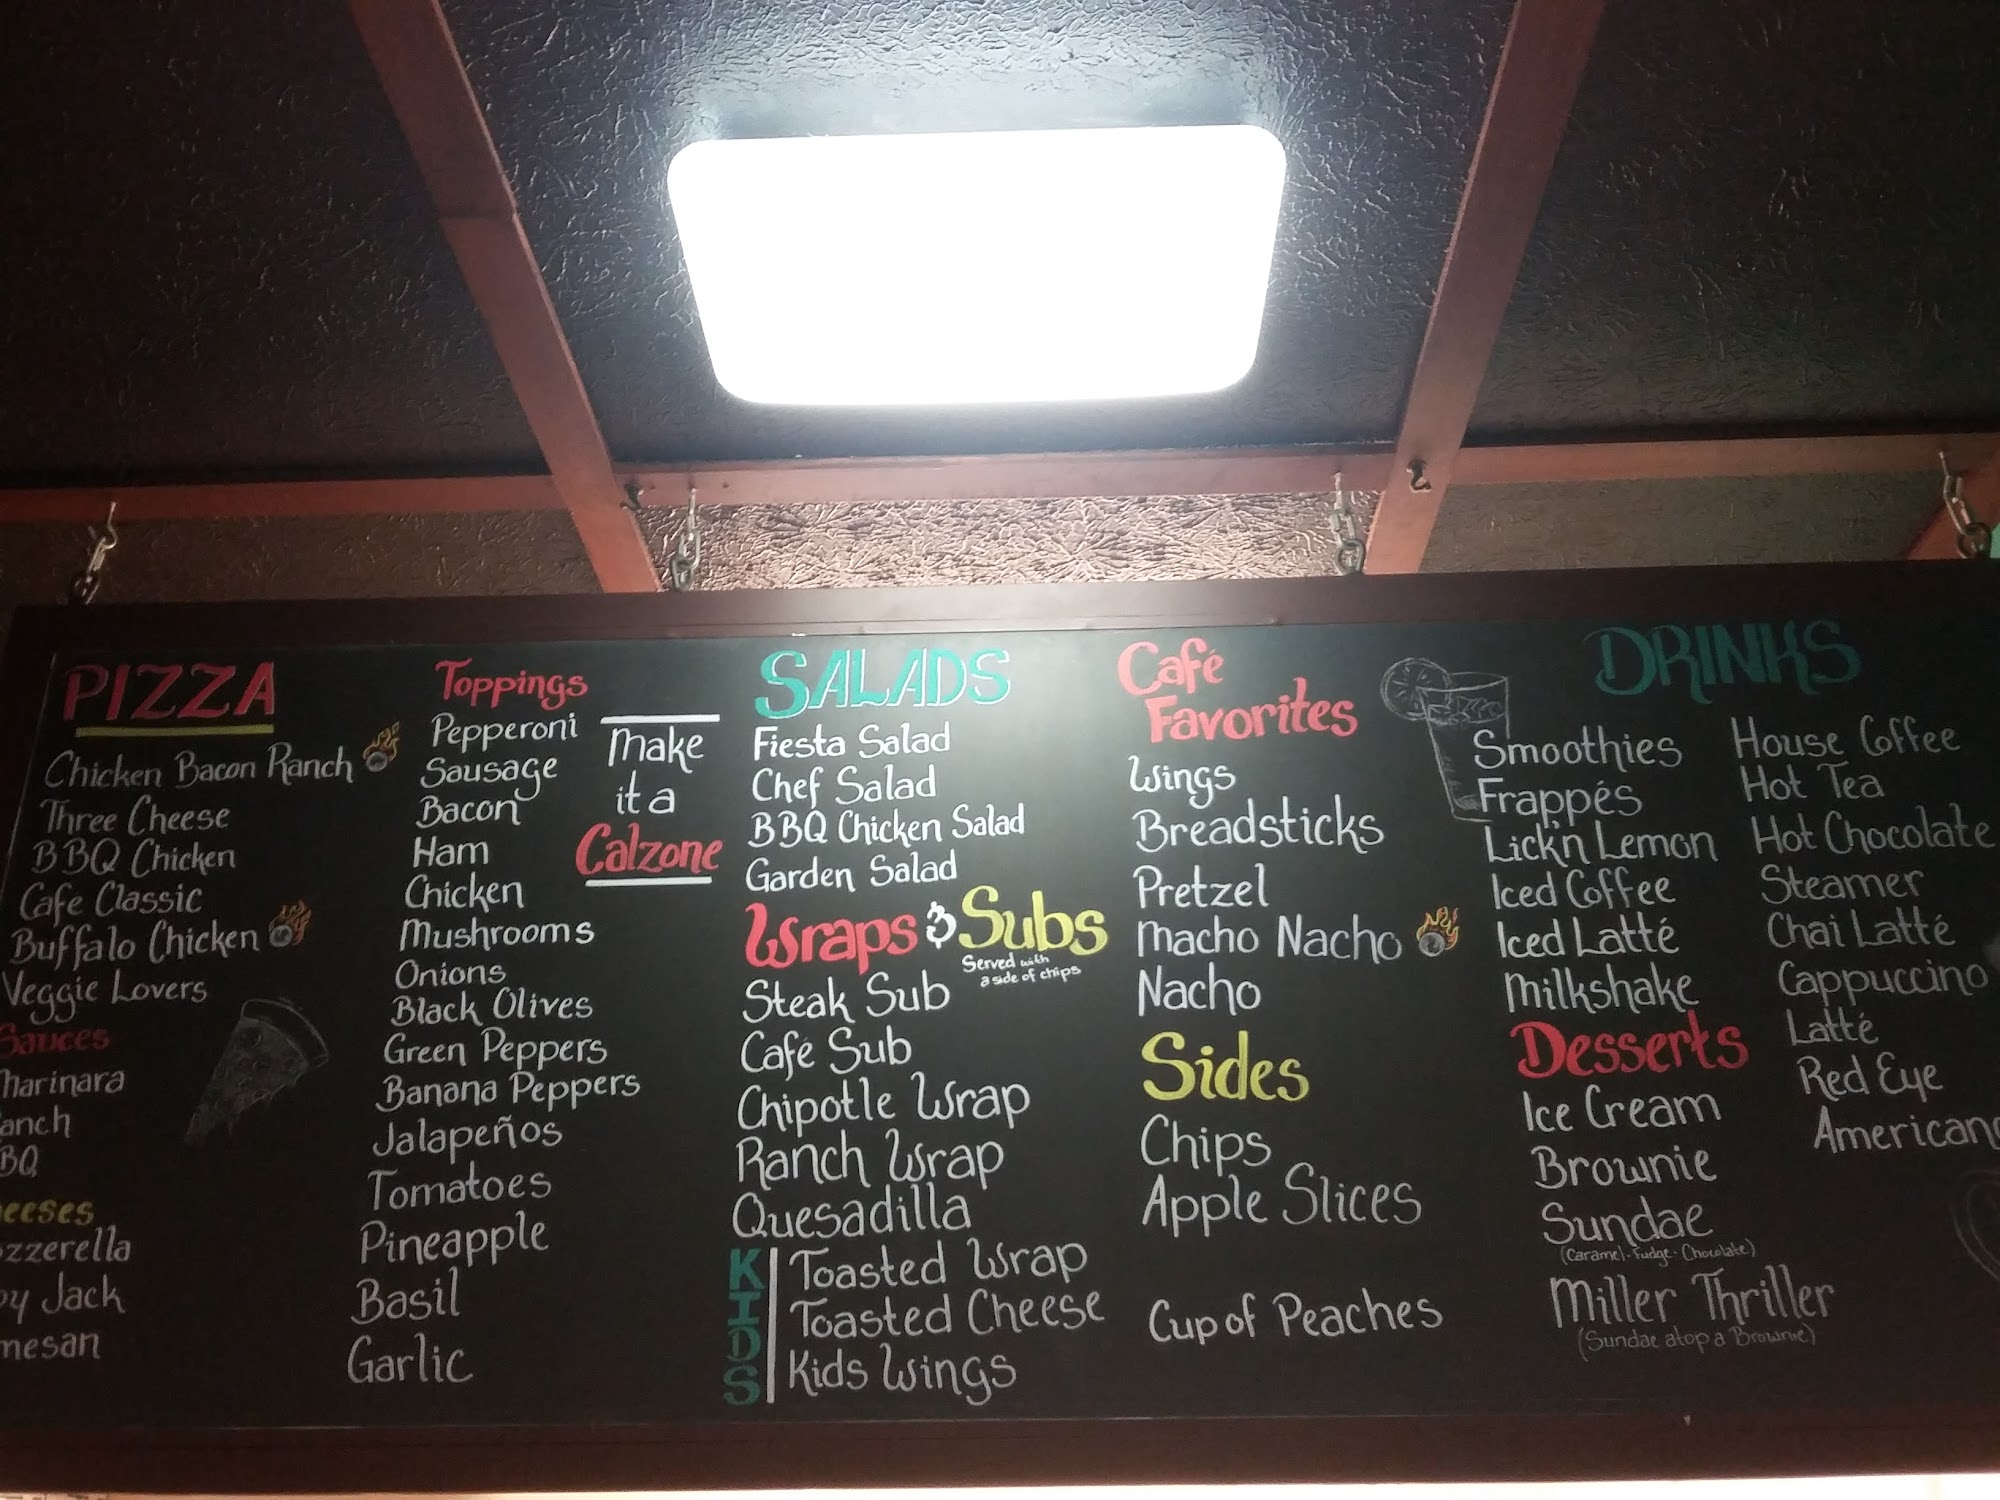 PIZZA
Chicken Bacon Ranch
Three Cheese
BBQ Chicken
Cafe Classic
Buffalo Chicken
Veggie Lovers
Sauces
Marinara
anch
BQ
eeses
ozzerella
by Jack
mesan
Toppings
Pepperoni
Sausage
Bacon
Ham
Chicken
Mushrooms
Onions
Black Olives
Green Peppers
Banana Peppers
Jalapeños
Tomatoes
Pineapple
Basil
Garlic
Make
it a
Calzone
SALADS
Fiesta Salad
Chef Salad
BBQ Chicken Salad
Garden Salad
Wraps & Subs
Served with
a side of chips
Steak Sub
Café Sub
Chipotle Wrap
Ranch Wrap
Quesadilla
KIDS
Toasted Wrap
Toasted Cheese
Kids Wings
Café
Favorites
Wings
Breadsticks
Pretzel
Macho Nacho
Nacho
Sides
Chips
Apple Slices
Cup of Peaches
DRINKS
Smoothies
Frappés
Lick'n Lemon
Iced Coffee
Iced Latté
Milkshake
Desserts
Ice Cream
Brownie
Sundae
(Caramel · Fudge · Chocolate)
Miller Thriller
(Sundae atop a Brownie)
House Coffee
Hot Tea
Hot Chocolate
Steamer
Chai Latté
Cappuccino
Latté
Red Eye
Americano